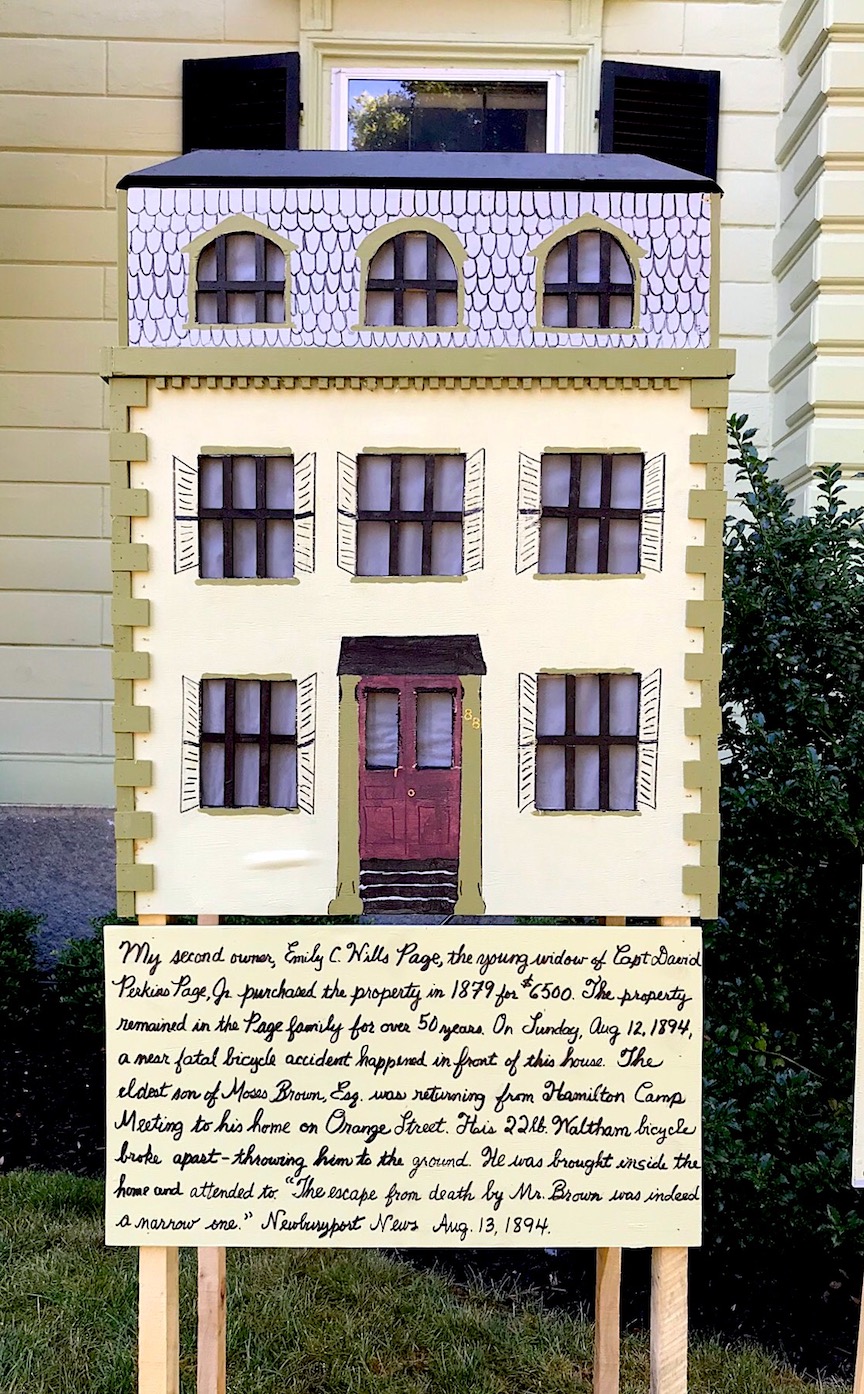 88
My second owner, Emily C. Wills Page, the young widow of Capt David
Perkins Page, Jr. purchased the property in 1879 for $6500. The property
remained in the Page family for over 50 years. On Sunday, Aug 12, 1894,
a near fatal bicycle accident happened in front of this house. The
eldest son of Moses Brown, Esq. was returning from Hamilton Camp
Meeting to his home on Orange Street. His 22lb. Waltham bicycle
broke apart-throwing him to the ground. He was brought inside the
home and attended to. "The escape from death by Mr. Brown was indeed
a narrow one." Newburyport News Aug. 13, 1894.